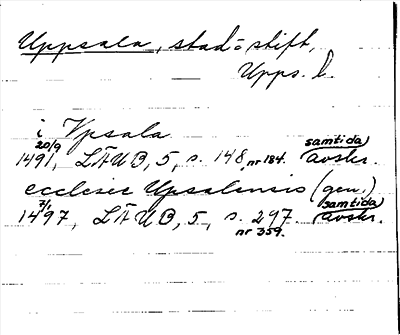 Uppsala, stad o stift,
Upps. l.
i Vpsala
20/9 1491, LÄUB, 5, s. 148, nr 184. samtida avskr.
ecclesie Upsalensis (gen.)
7/1 1497, LÄUB, 5, s. 297. nr 359. samtida avskr.